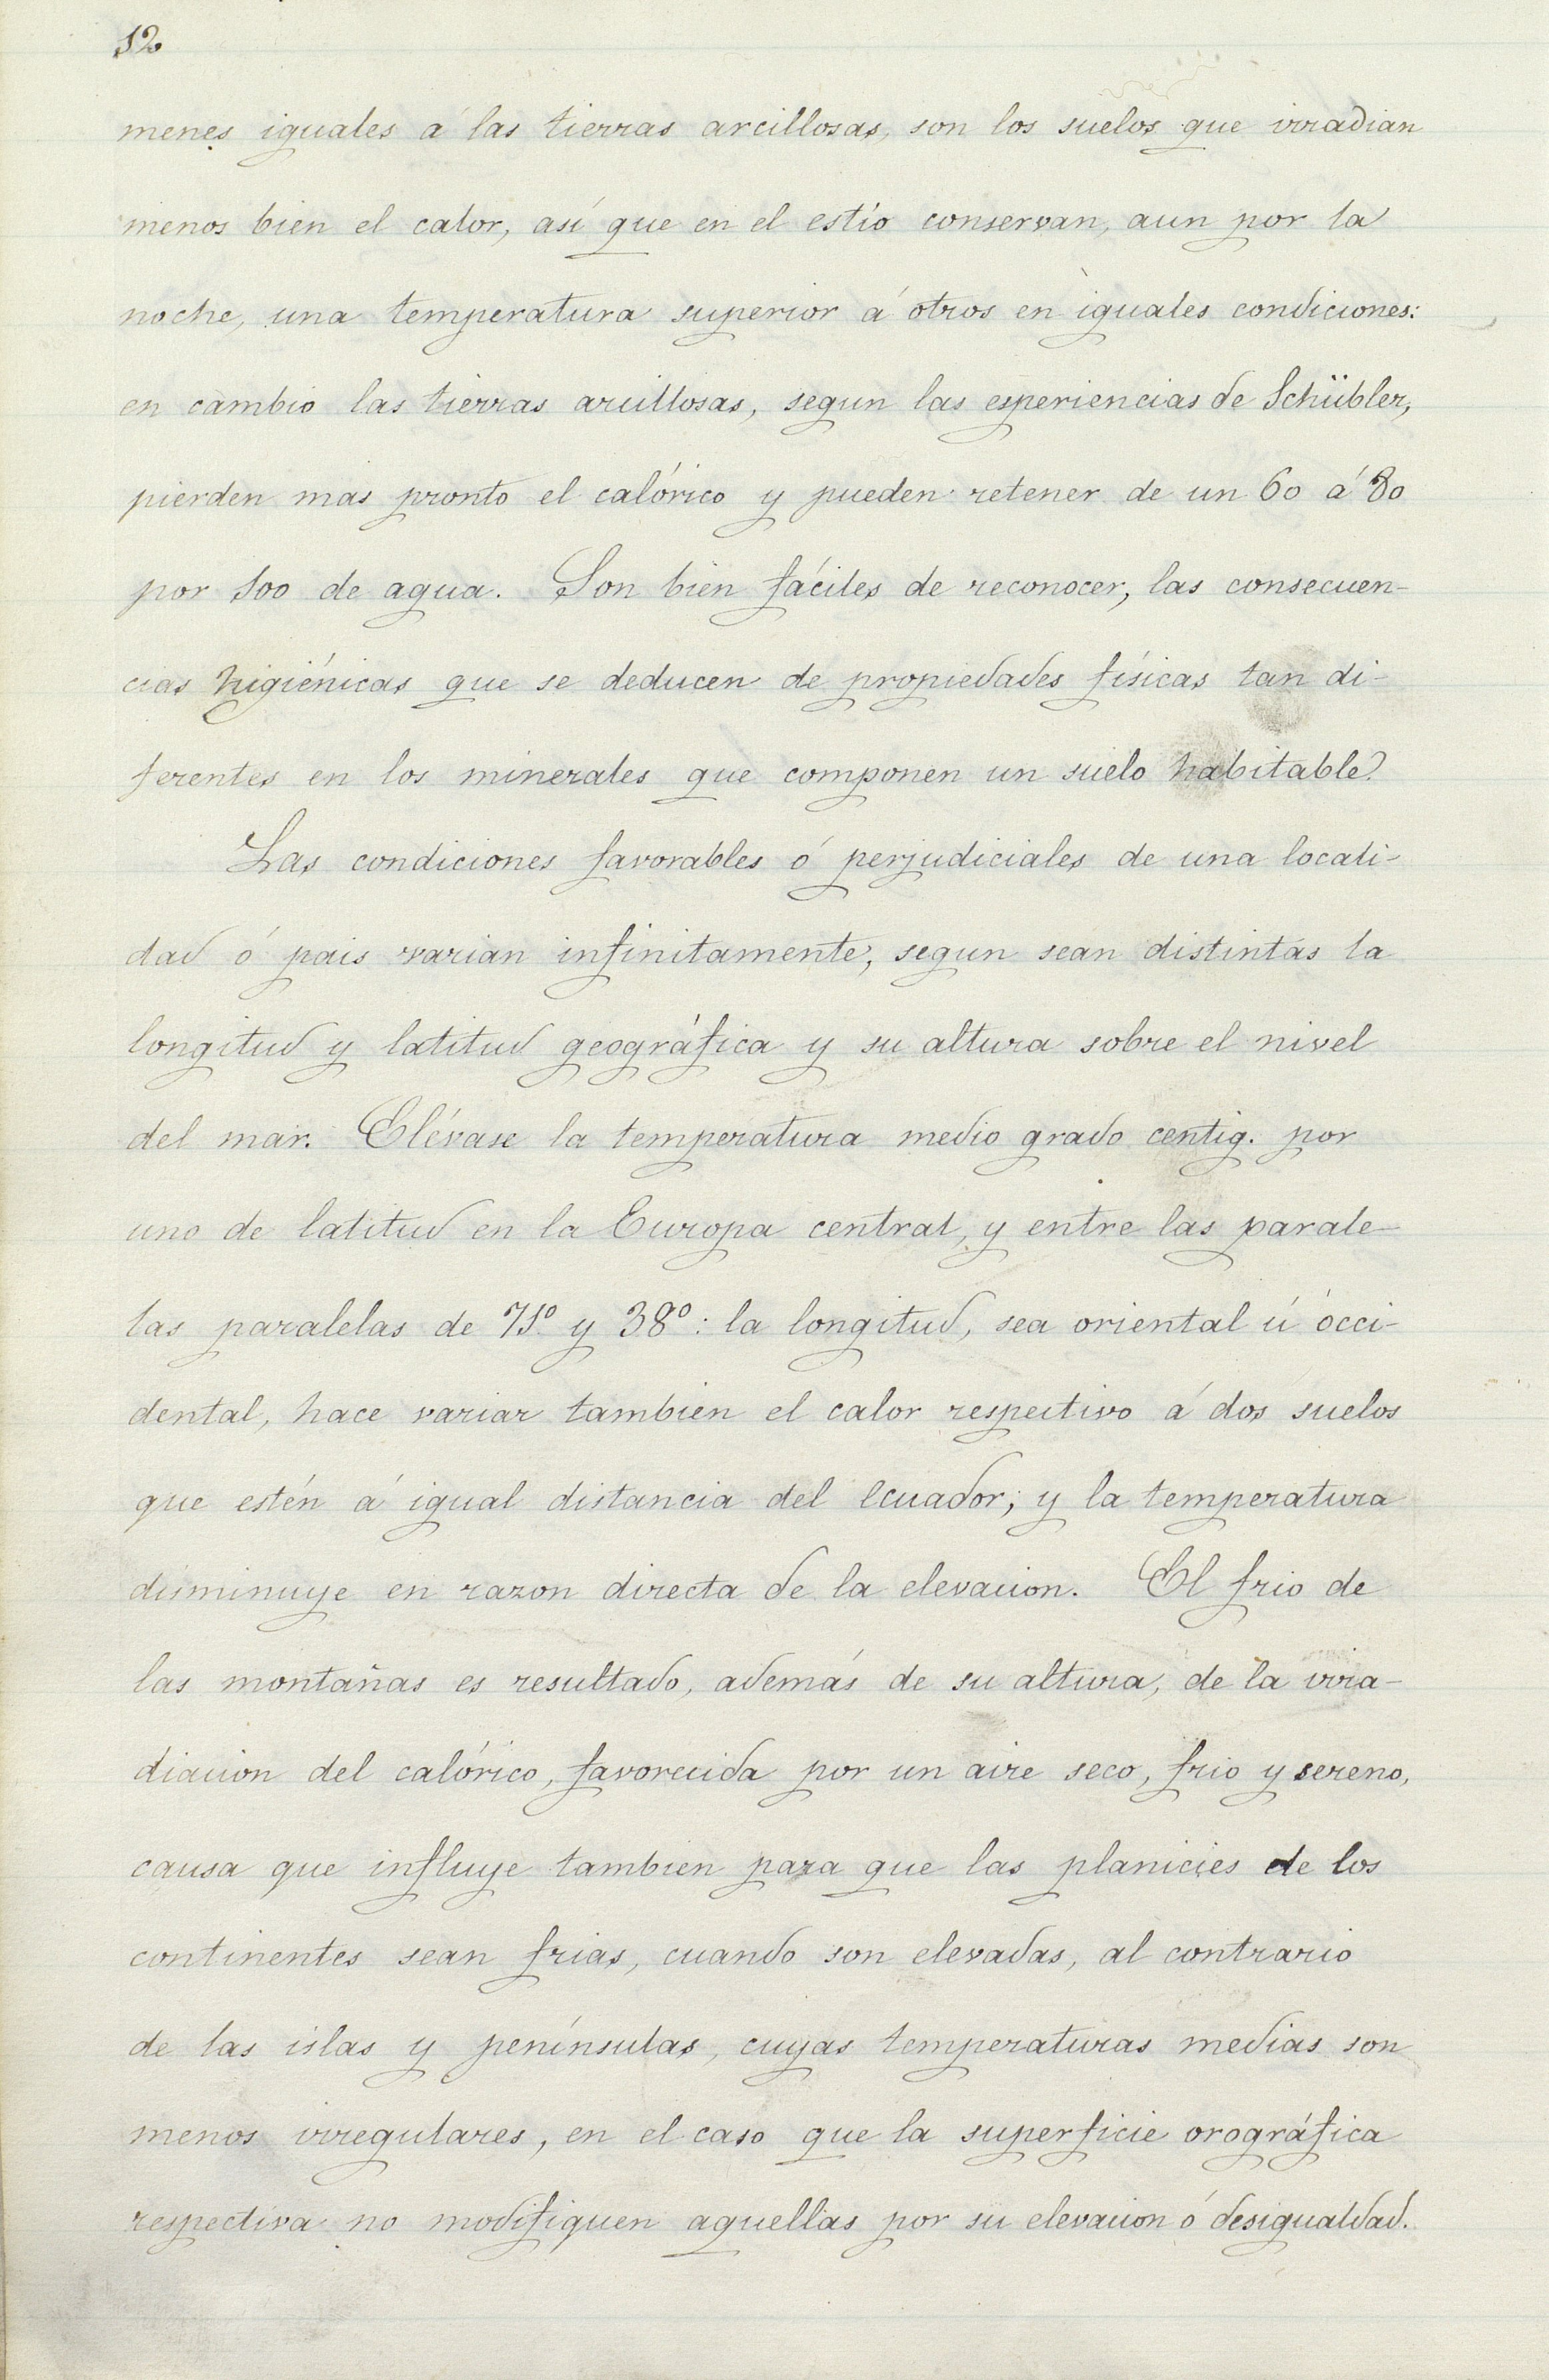 12
menes iguales á las tierras arcillosas, son los suelos que irradian
menos bien el calor, así que en el estío conservan, aun por la
noche, una temperatura superior á otros en iguales condiciones:
en cambio las tierras arcillosas, segun las esperiencias de Schübler,
pierden mas pronto el calórico y pueden retener de un 60 á 80
por 100 de agua. Son bien fáciles de reconocer, las consecuen-
cias higiénicas que se deducen de propiedades físicas tan di-
ferentes en los minerales que componen un suelo habitable?
Las condiciones favorables ó perjudiciales de una locali-
dad ó pais varian infinitamente, segun sean distintas la
longitud y latitud geográfica y su altura sobre el nivel
del mar. Elévase la temperatura medio grado centig. por
uno de latitud en la Europa central, y entre las parale-
las paralelas de 71º y 38º: la longitud, sea oriental ú occi-
dental, hace variar tambien el calor respectivo á dos suelos
que estén á igual distancia del Ecuador; y la temperatura
disminuye en razon directa de la elevacion. El frio de
las montañas es resultado, además de su altura, de la irra-
diacion del calórico, favorecida por un aire seco, frio y sereno,
causa que influye tambien para que las planicies de los
continentes sean frias, cuando son elevadas, al contrario
de las islas y penínsulas, cuyas temperaturas medias son
menos irregulares, en el caso que la superficie orográfica
respectiva no modifiquen aquellas por su elevacion ó desigualdad.